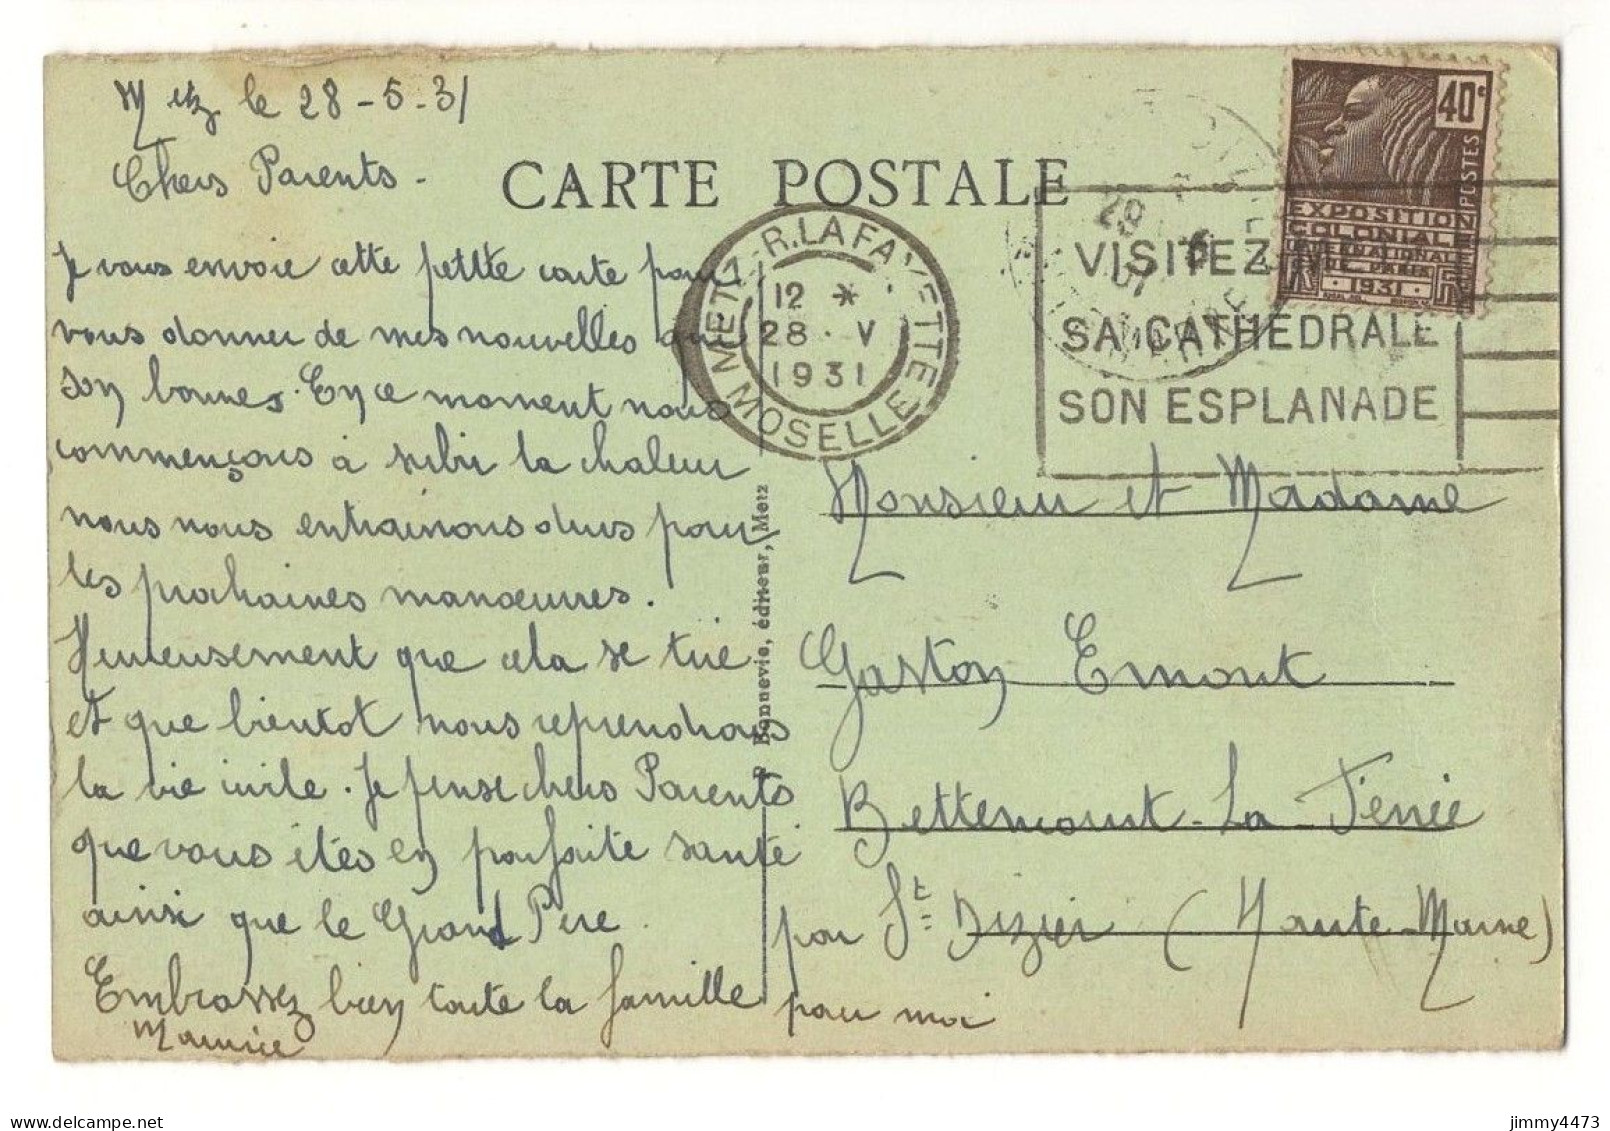 Metz le 28-5-31
Chers Parents-
Je vous envoie cette petite carte pour
vous donner de mes nouvelles qui
son bonnes. En ce moment nous
commençons à subir la chaleur
nous nous entrainons durs pour
les prochaines manœuvres.
Heureusement que cela se tire
et que bientot nous reprendrons
la vie civile. Je pense chers Parents
que vous êtes en parfaite santé
ainsi que le Grand Père.
Embrassez bien toute la famille pour moi
Maurice
CARTE POSTALE
METZ-R. LAFAYETTE
12 *
28 · V
1931
MOSELLE
VISITEZ METZ
SA CATHEDRALE
SON ESPLANADE
40c
POSTES
EXPOSITION
COLONIALE
INTERNATIONALE
DE PARIS
· 1931 ·
Bonnevie, éditeur, Metz
Monsieur et Madame
Gaston Emont
Bettemont-La-Ferrée
par St Dizier (Haute-Marne)
jimmy4473